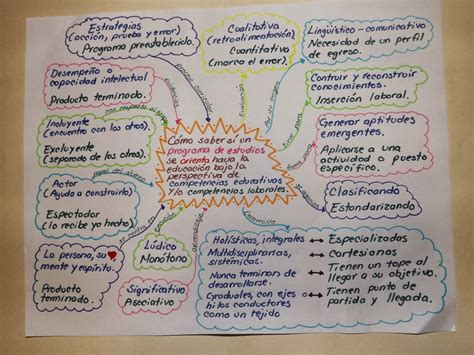 Estrategias
(acción, prueba y error)
Programa preestablecido.
Cualitativa
(retroalimentación)
Cuantitativa
(marca el error).
Lingüístico - comunicativo
Necesidad de un perfil
de egreso.
Desempeño o
capacidad intelectual
Producto terminado.
Contruir y reconstruir
conocimientos.
Inserción laboral.
Incluyente
(encuentro con los otros).
Excluyente
(separado de los otros).
Generar aptitudes
emergentes.
Aplicarse a una
actividad o puesto
específico.
Cómo saber si un
programa de estudios
se orienta hacia la
educación bajo la
perspectiva de
competencias educativas
y/o competencias laborales.
Actor
(Ayuda a construirlo)
Espectador
(lo recibe ya hecho)
Clasificando
Estandarizando
La persona, su
mente y espíritu.
Producto
terminado.
Lúdico
Monótono
Significativo
Asociativo
Holísticas, integrales
Especializadas
Multidisciplinarias,
sistémicas.
Cartesianas
Nunca terminan de
desarrollarse.
Tienen un tope al
llegar a su objetivo.
Graduales, con ejes
hilos conductores
como un tejido
Tienen punto de
partida y llegada.
Evaluación
papel del alumno
Aprendizaje
Desarrollo